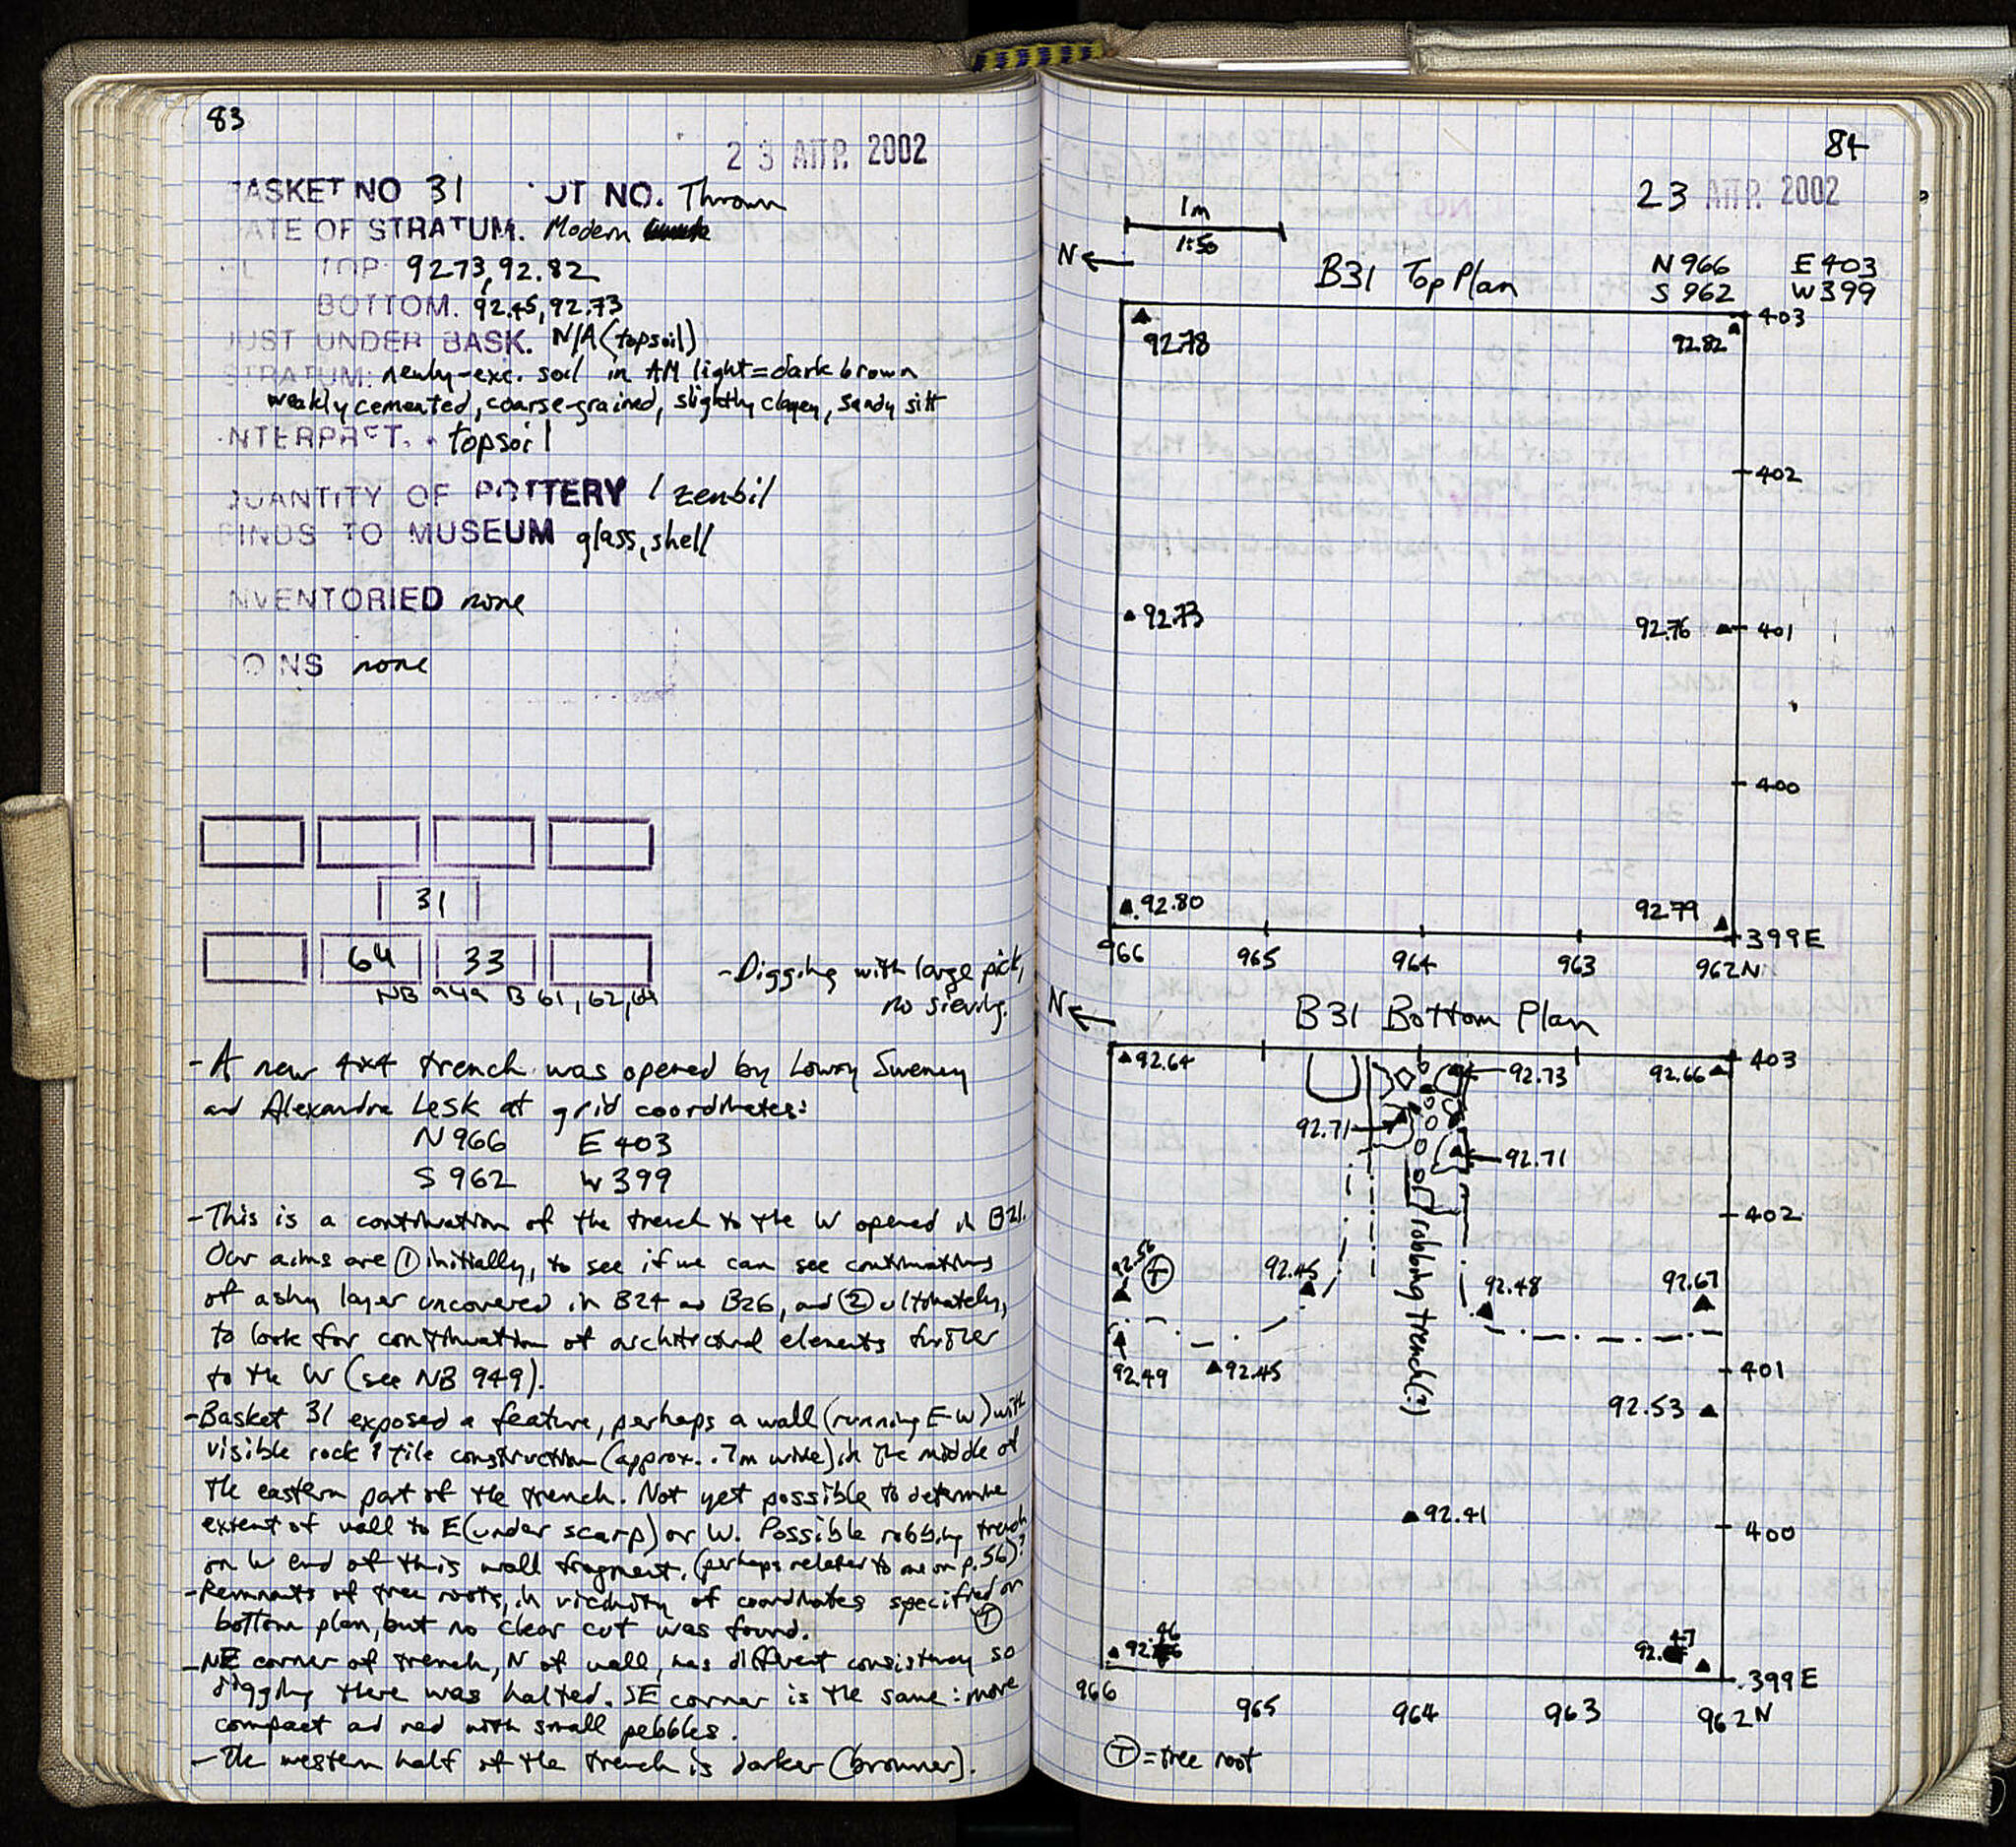 83
23 ΑΠΡ. 2002
ASKET NO 31 UT NO. Thrown
ATE OF STRATUM. Modern
EL TOP: 92.73, 92.82
BOTTOM. 92.45, 92.73
UST UNDER BASK. N/A (topsoil)
STRATUM: newly-exc. soil in AM light = dark brown
weakly cemented, coarse-grained, slightly clayey, sandy silt
NTERPRET. topsoil
QUANTITY OF POTTERY 1 zembil
FINDS TO MUSEUM glass, shell
NVENTORIED none
OINS none
31
64 33
NB 949 B 61, 62, 64
- Digging with large pick,
no sieving.
- A new 4x4 trench was opened by Lowry Sweney
and Alexandra Lesk at grid coordinates:
N 966 E 403
S 962 W 399
- This is a continuation of the trench to the W opened in B21.
Our aims are ① initially, to see if we can see continuations
of ashy layer uncovered in B24 and B26, and ② ultimately,
to look for continuation of architectural elements further
to the W (see NB 949).
- Basket 31 exposed a feature, perhaps a wall (running E-W) with
visible rock & tile construction (approx. .7m wide) in the middle of
the eastern part of the trench. Not yet possible to determine
extent of wall to E (under scarp) or W. Possible robbing trench
on W end of this wall fragment. (perhaps related to one on p. 56)?
- Remnants of tree roots, in vicinity of coordinates specified on
bottom plan, but no clear cut was found. Ⓣ
- NE corner of trench, N of wall, has different consistency so
digging there was halted. SE corner is the same: more
compact and red with small pebbles.
- The western half of the trench is darker (browner).
84
23 ΑΠΡ. 2002
1m
1:50
N ←
B31 Top Plan
N 966 E 403
S 962 W 399
403
92.78 92.82
402
92.73 92.76 401
400
92.80 92.79
399 E
966 965 964 963 962 N
N ←
B31 Bottom Plan
92.64 92.73 92.66 403
92.71 92.71
402
92.56 Ⓣ 92.45 92.48 92.67
robbing trench(?)
92.49 92.45 401
92.53
92.41 400
92.46 92.47
399 E
966 965 964 963 962 N
Ⓣ = tree root